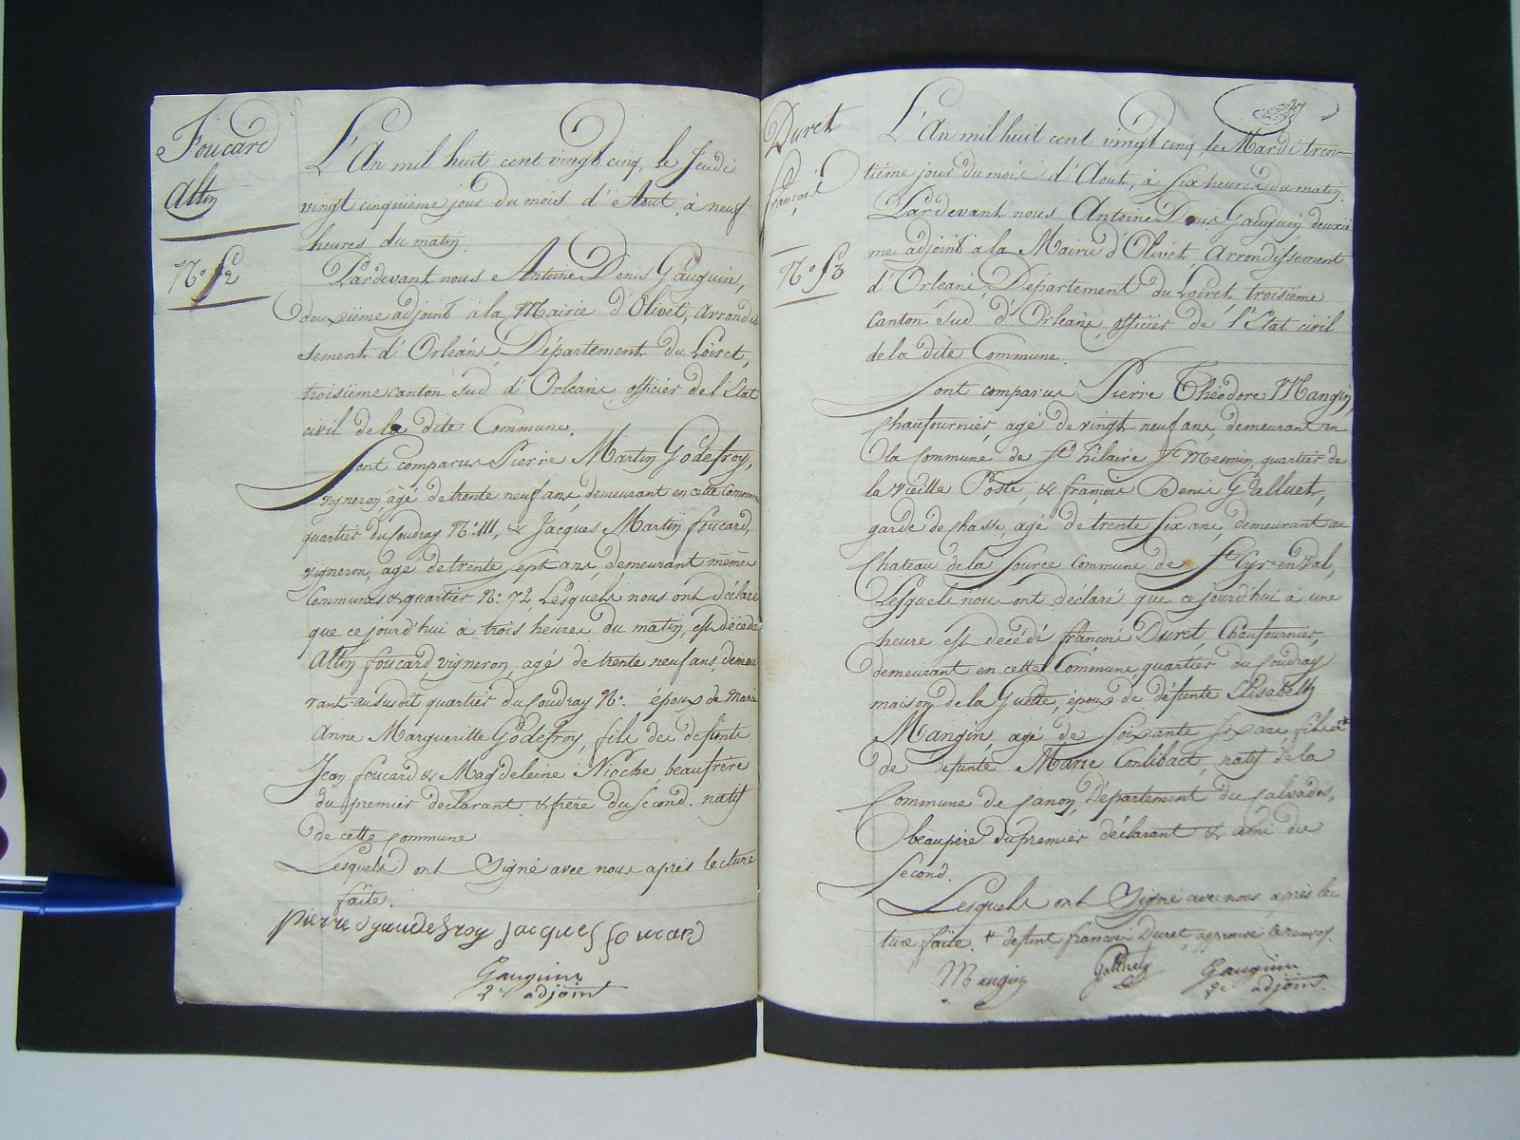 Foucard
Altin
N.o 52
L'An mil huit cent vingt cinq, le Jeudi
vingt cinquième jour du mois d'Aout, à neuf
heures du matin.
Pardevant nous Antoine Denis Gauguin,
deuxième adjoint à la Mairie d'Olivet, Arrondis
sement d'Orléans, Département du Loiret,
troisième canton Sud d'Orléans officier de l'Etat
civil de la dite Commune.
Sont comparus Pierre Martin Godefroy,
vigneron, âgé de trente neuf ans, demeurant en cette Commune
quartier du Coudray N.o 111, & Jacques Martin Foucard,
vigneron, âgé de trente sept ans, demeurant même
Commune & quartier N.o 72, Lesquels nous ont déclaré
que ce jourd'hui à trois heures du matin, est décédé
Altin Foucard, vigneron, agé de trente neuf ans, demeu
rant au susdit quartier du Coudray N.o époux de Marie
Anne Margueritte Godefroy, fils de defunts
Jean Foucard & Magdeleine Nioche, beaufrère
du premier déclarant & frère du Second. natif
de cette commune
Lesquels ont Signé avec nous après lecture
faite.
pierre gaudefroy jacques foucard
Gauguin
2e adjoint
Duret
françois
N.o 53
L'An mil huit cent vingt cinq, le Mardi tren
tième jour du mois d'Aout, à six heures du matin.
Pardevant nous Antoine Denis Gauguin, deuxiè
me adjoint à la Mairie d'Olivet, Arrondissement
d'Orléans, Département du Loiret, troisième
Canton Sud d'Orléans, officier de l'Etat civil
de la dite Commune.
Sont comparus Pierre Théodore Mangin,
chaufournier, agé de vingt neuf ans, demeurant en
la Commune de St. hilaire St. Mesmin, quartier de
la vieille Poste, & françois Denis Galluet,
garde de chasse, agé de trente six ans, demeurant au
Chateau de la Source Commune de St. Cyr-en-Val,
Lesquels nous ont déclaré que ce jourd'hui à une
heure est décédé françois Duret, Chaufournier,
demeurant en cette Commune quartier du Coudray
maison de la Guette, époux de défunte Elisabeth
Mangin, agé de soixante six ans, fils de +
de defunte Marie Conlibact, natif de la
Commune de Canon, Département du Calvados,
beaupère du premier déclarant & ami du
Second.
Lesquels ont Signé avec nous après lec
ture faite. + defunt françois Duret approuvé le renvoy.
Mangin Galluet Gauguin
2e adjoint.